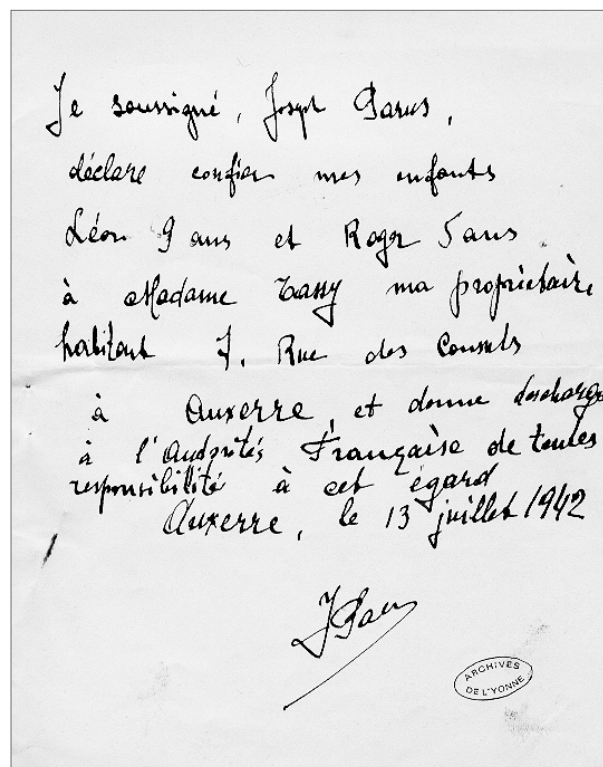 Je soussigné, Joseph Parus,
déclare confier mes enfants
Léon 9 ans et Roger 5 ans
à Madame Tassy ma propriétaire
habitant 7. Rue des Consuls
à Auxerre, et donne descharge
à l'Autorités Française de toutes
responsibilité à cet égard
Auxerre, le 13 juillet 1942
ARCHIVES
DE L'YONNE